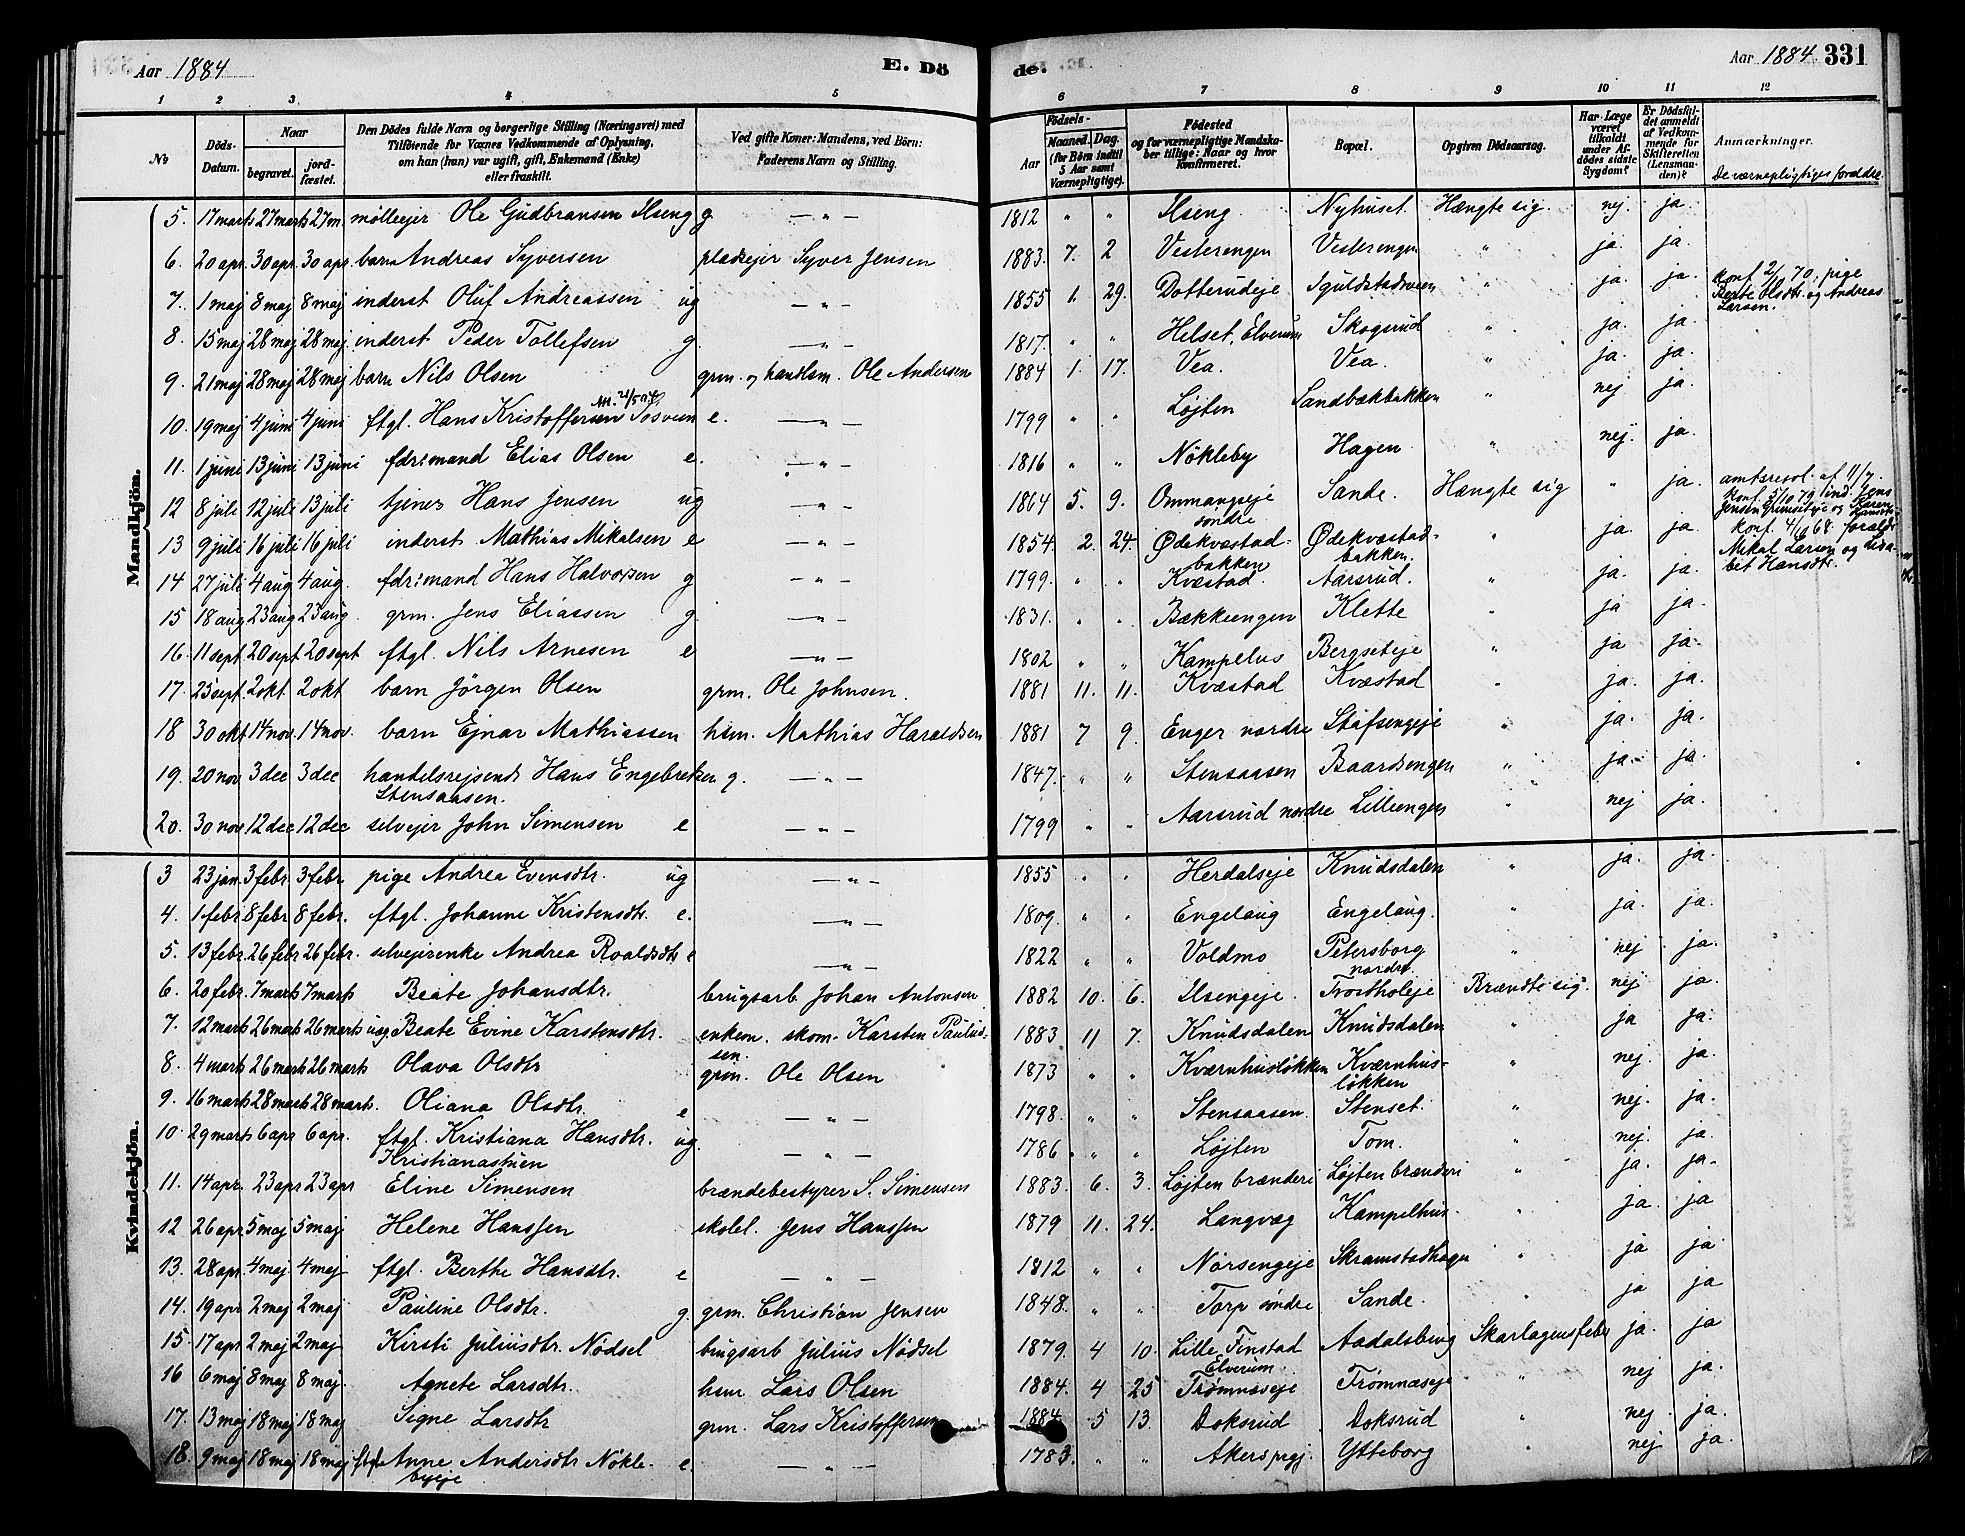 Aar 1884 E. Dö de. Aar 1884 331
1 2 3 4 5 6 7 8 9 10 11 12
No Döds-Datum. Naar begravet. jordfæstet. Den Dödes fulde Navn og borgerlige Stilling (Næringsvei) med Tilföiende for Voxnes Vedkommende af Oplysning, om han (hun) var ugift, gift, Enkemand (Enke) eller fraskilt. Ved gifte Koner: Mandens, ved Börn: Faderens Navn og Stilling. Födsels- Aar Maaned. Dag. (for Börn indtil 5 Aar samt Værnepligtige). Födested og for værnepligtige Mandskaber tillige: Naar og hvor konfirmeret. Bopæl. Opgiven Dödsaarsag. Har Læge været tilkaldt under Afdödes sidste Sygdom? Er Dödsfaldet anmeldt af Vedkommende for Skifteretten (Lensmanden)? Anmærkninger. De værnepligtiges forældre.
Mandkjön.
5. 17 marts 27 marts 27 m. mølleejer Ole Gudbransen Ilseng g — " — 1812 " " Ilseng. Nyhuset. Hængte sig. nej. ja.
6. 20 apr. 30 apr. 30 apr. barn Andreas Syversen pladsejer Syver Jensen 1883. 7. 2 Vesterengen Vesterengen " ja. ja.
7. 1 maj 8 maj 8 maj inderst Oluf Andreassen ug — " — 1855 1. 29. Dotterudeje Sguldstadveien " ja. ja. konf. 2/1 70. pige Berte Olsdtr. og Andreas Larsen.
8. 15 maj 28 maj 28 maj. inderst Peder Tollefsen g. — " — 1817. " " Helset, Elverum Skogsrud " ja. ja.
9. 21 maj 28 maj 28 maj barn Nils Olsen grm. og handlsm. Ole Andersen 1884 1. 17. Vea. Vea. " ja. ja.
10. 19 maj 4 juni 4 juni ftgl. Hans Kristoffersen Tosveen e. — " — 1799 " " Løjten Sandbækbakken " nej ja.
11. 1 juni 13 juni 13 juni fdr:mand Elias Olsen e. — " — 1816 " " Nökleby Hagen. " nej. ja.
12 8 juli 12 juli 13 juli tjener Hans Jensen ug — " — 1864 5. 9. Ommangseje söndre Sande. Hængte sig " ja. amtsresol. af 11/7. konf. 5/10 79. ind. Jens Jensen Grimseteje og Karen Hansdtr.
13 9 juli 16 juli 16 juli inderst Mathias Mikalsen e — " — 1854. 2. 24. Ødekvæstadbakken Ødekvæstadbakken. " ja. ja. konf. 4/10 68. foræld. Mikal Larsen og Lisabet Hansdtr.
14 27 juli 4 aug 4 aug. fdr:mand Hans Halvorsen g — " — 1799. " " Kvæstad. Aarsrud. " ja. ja.
15 18 aug 23 aug 23 aug. grm. Jens Eliassen g — " — 1831. " " Bækkeengen Klette " ja ja.
16. 11 sept 20 sept 20 sept ftgl. Nils Arnesen e — " — 1802 " " Kampelus Bergseteje " ja ja.
17. 25 sept. 2 okt. 2 okt barn Jörgen Olsen grm. Ole Johnsen. 1881 11. 11. Kvæstad Kvæstad " ja. ja.
18 30 okt 14 nov. 14 nov. barn Ejnar Mathiassen hsm. Mathias Haraldsen 1881 7 9. Enger nordre Stafsengeje " ja. ja.
19. 20 nov 3 dec 3 dec handelsrejsende Hans Engebretsen Stensaasen. g. — " — 1847. " " Stensaasen Baardsengen " ja. ja.
20. 30 nov 12 dec 12 dec selvejer John Simensen e — " — 1799 " " Aarsrud nordre Lilleengen " nej ja.
Kvindekjön.
3 23 jan. 3 febr. 3 febr pige Andrea Evensdtr. ug — " — 1855 " " Herdalseje Knudsdalen " ja. ja.
4. 1 febr 8 febr 8 febr. ftgl. Johanne Kristensdtr. e. — " — 1809. " " Engelaug Engelaug. " ja. ja.
5. 13 febr. 26 febr 26 febr. selvejerenke Andrea Roaldsdtr e — " — 1822 " " Voldmo Petersborg " nej ja.
6. 20 febr. 7 marts 7 marts Beate Johansdtr. brugsarb Johan Antonsen 1882 10. 6. Ilsengeje. nordre Trostholeje Brændte sig. nej ja.
7. 12 marts 26 marts 26 marts uæg. Beate Evine Karstensdtr. enkem. skom. Karsten Paulussen. 1883 11 7. Knudsdalen Knudsdalen " ja ja.
8. 4 marts 26 marts 26 marts Olava Olsdtr grm. Ole Olsen 1873 " " Kværnhusløkken Kværnhusløkken " nej. ja.
9. 16 marts 28 marts 28 marts. Oliana Olsdtr. e — " — 1798. " " Stensaasen. Stenset. " nej. ja.
10. 29 marts 6 apr 6 apr. ftgl. Kristiana Hansdtr. Kristianastuen ug. — " — 1786. " " Løjten Tom. " nej. ja.
11. 14 apr. 23 apr 23 apr Eline Simensen brændebestyrer S. Simensen 1883. 6. 3. Løjten brænderi Løjten brænderi " ja. ja.
12 26 apr. 5 maj 5 maj Helene Hanssen skolel. Jens Hanssen 1879 11. 24. Langvæg Kampelhus. " ja. ja
13. 28 apr. 4 maj 4 maj ftgl. Berthe Hansdtr. e — " — 1812 " " Nörsengeje Skramstadhagen " ja ja
14. 19 apr 2 maj 2 maj Pauline Olsdtr. g. grm. Christian Jensen 1848. " " Torp söndre Sande. " ja ja
15. 17 apr 2 maj 2 maj Kirsti Juliusdtr. Nödsel brugsarb Julius Nödsel 1879. 4 10. Lille Finstad Elverum. Aadalsberg Skarlagensfeber ja. ja
16 6 maj 8 maj 8 maj. Agnete Larsdtr. hsm Lars Olsen 1884. 4 25 Trømnæseje Trømnæseje " nej ja.
17. 13 maj 18 maj 18 maj Signe Larsdtr grm. Lars Kristoffersen 1884 5 13. Doksrud Doksrud " nej ja.
18. 9 maj 18 maj 18 maj ftgl Anne Andersdtr Nöklebyeje e. — " — 1783. " " Akers prgj. Ytteborg " nej. ja.